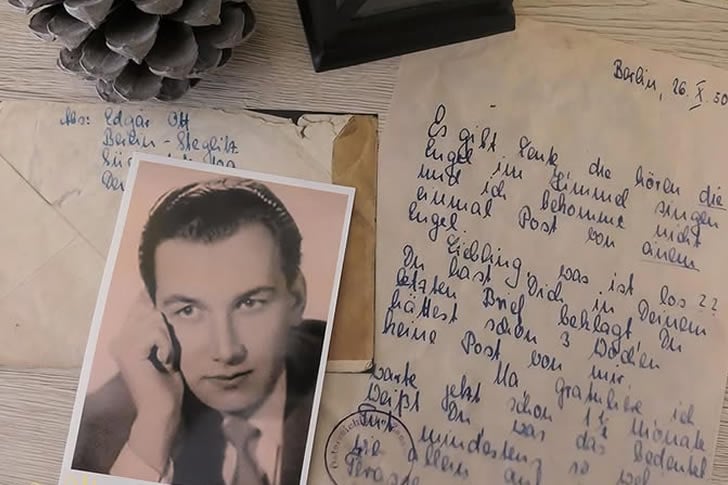 Abs: Edgar Ott
Berlin-Steglitz
Berlin, 26. X. 50
Es gibt Leute die hören die
Engel im Himmel singen
und ich bekomme nicht
einmal Post von einem
Engel.
Liebling was ist los??
Du hast Dich in Deinem
letzten Brief beklagt, Du
hättest schon 3 Wochen
keine Post von mir.
Na gratuliere ich
warte jetzt schon 1½ Monate
Weißt Du was das bedeutet
mindestens so